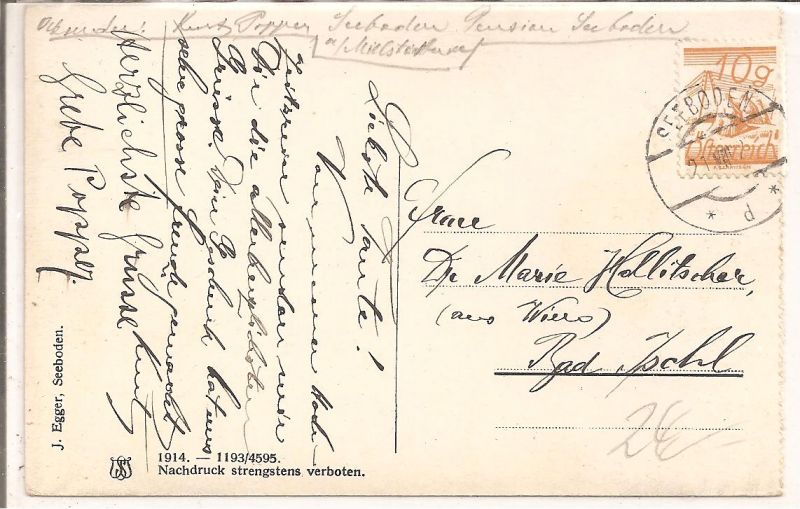 Absender: Kurt Popper Seeboden Pension Seeboden
a/Millstättersee
10g
Österreich
SEEBODEN
d
Liebste Tante!
Von unserer Hoch-
zeitsreise senden wir
Dir die allerherzlichsten
Grüsse. Dein Geschenk hat uns
sehr grosse Freude gemacht
Herzlichste Grüsse Kurt
Grete Popper.
Frau
Dr Marie Hollitscher,
(aus Wien)
Bad Ischl
24
J. Egger, Seeboden.
1914. — 1193/4595.
Nachdruck strengstens verboten.